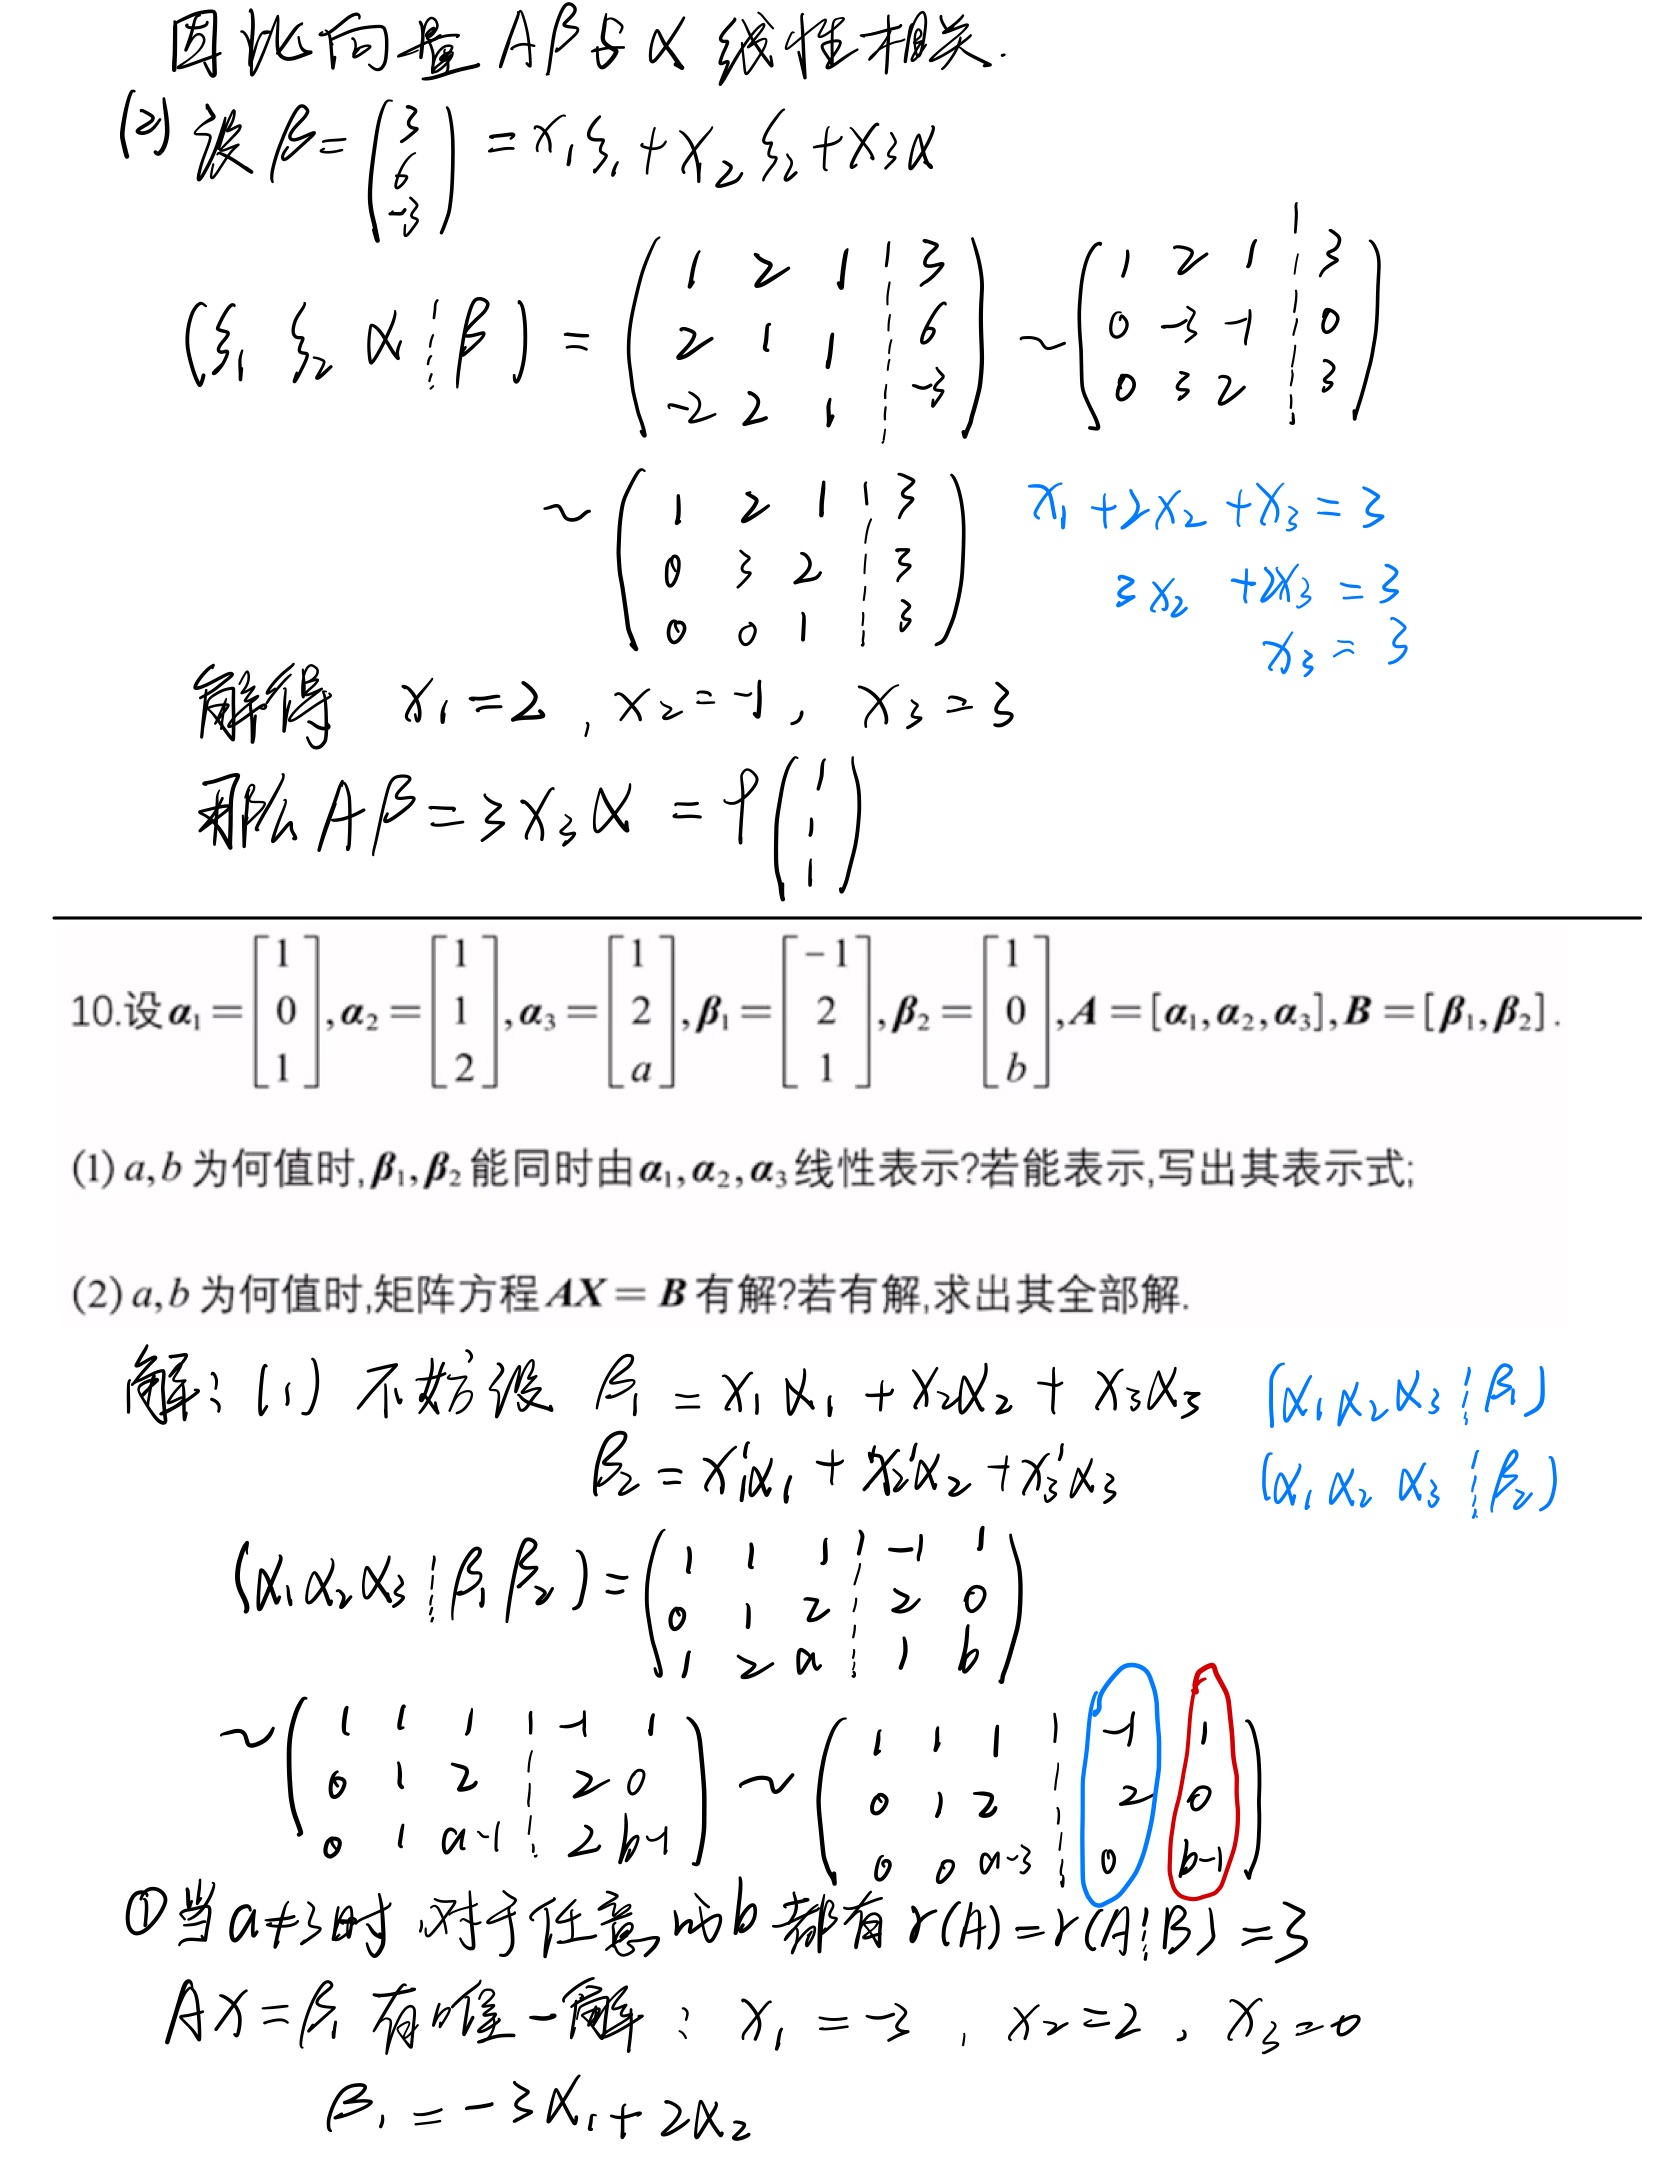 因此向量 Aβ与α 线性相关.
(2) 设 β = (3 6 -3) = x₁ξ₁ + x₂ξ₂ + x₃α
(ξ₁ ξ₂ α ┊ β) = (1 2 1 ┊ 3; 2 1 1 ┊ 6; -2 2 1 ┊ -3) ~ (1 2 1 ┊ 3; 0 -3 -1 ┊ 0; 0 3 2 ┊ 3)
~ (1 2 1 ┊ 3; 0 3 2 ┊ 3; 0 0 1 ┊ 3)
x₁ + 2x₂ + x₃ = 3
3x₂ + 2x₃ = 3
x₃ = 3
解得 x₁ = 2, x₂ = -1, x₃ = 3
那么 Aβ = 3x₃α = 9(1 1 1)
10.设 α₁ = [1 0 1], α₂ = [1 1 2], α₃ = [1 2 a], β₁ = [-1 2 1], β₂ = [1 0 b], A = [α₁, α₂, α₃], B = [β₁, β₂].
(1) a, b 为何值时, β₁, β₂ 能同时由 α₁, α₂, α₃ 线性表示?若能表示,写出其表示式;
(2) a, b 为何值时,矩阵方程 AX = B 有解?若有解,求出其全部解.
解: (1) 不妨设 β₁ = x₁α₁ + x₂α₂ + x₃α₃ (α₁ α₂ α₃ ┊ β₁)
β₂ = x₁'α₁ + x₂'α₂ + x₃'α₃ (α₁ α₂ α₃ ┊ β₂)
(α₁ α₂ α₃ ┊ β₁ β₂) = (1 1 1 ┊ -1 1; 0 1 2 ┊ 2 0; 1 2 a ┊ 1 b)
~ (1 1 1 ┊ -1 1; 0 1 2 ┊ 2 0; 0 1 a-1 ┊ 2 b-1) ~ (1 1 1 ┊ -1 1; 0 1 2 ┊ 2 0; 0 0 a-3 ┊ 0 b-1)
①当 a≠3时,对于任意的b 都有 r(A) = r(A┊B) = 3
AX = β₁ 有唯一解: x₁ = -3, x₂ = 2, x₃ = 0
β₁ = -3α₁ + 2α₂